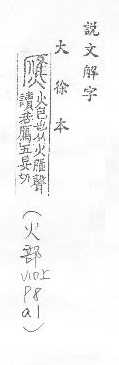 說文解字
大徐本
火色也从火雁聲
讀若鴈五晏切
（火部 V10上 P8 a1）